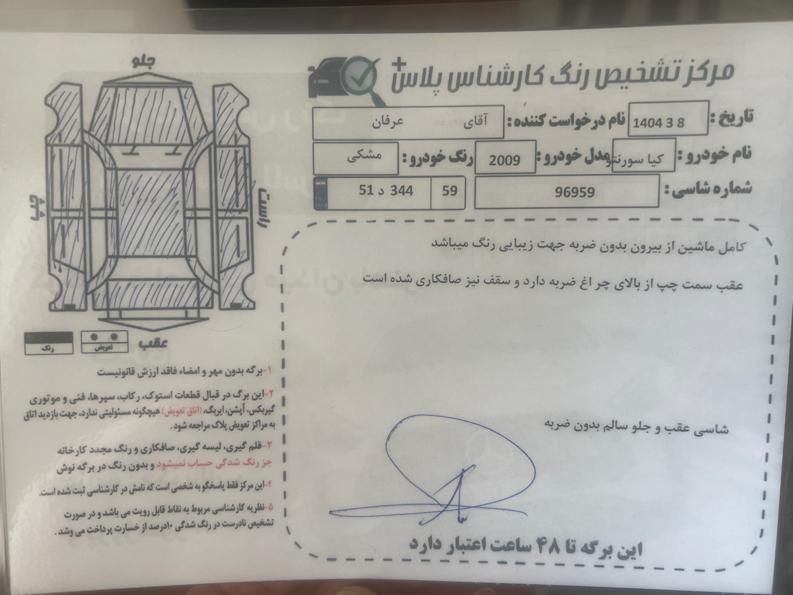 مرکز تشخیص رنگ کارشناس پلاس+
تاریخ : 1404 3 8 نام درخواست کننده : آقای عرفان
نام خودرو : کیا سورنتو مدل خودرو : 2009 رنگ خودرو : مشکی
شماره شاسی : 96959 59 344 د 51
کامل ماشین از بیرون بدون ضربه جهت زیبایی رنگ میباشد
عقب سمت چپ از بالای چراغ ضربه دارد و سقف نیز صافکاری شده است
شاسی عقب و جلو سالم بدون ضربه
این برگه تا ۴۸ ساعت اعتبار دارد
جلو
چپ
راست
عقب
تعویض
رنگ
۱-برگه بدون مهر و امضاء فاقد ارزش قانونیست
۲-این برگ در قبال قطعات استوک، رکاب، سپرها، فنی و موتوری
گیربکس، آپشن، ایربگ، (اتاق تعویض) هیچگونه مسئولیتی ندارد، جهت بازدید اتاق
به مراکز تعویض پلاک مراجعه شود.
۳-قلم گیری، لیسه گیری، صافکاری و رنگ مجدد کارخانه
جز رنگ شدگی حساب نمیشود و بدون رنگ در برگه نوش
۴-این مرکز فقط پاسخگو به شخصی است که نامش در کارشناسی ثبت شده است.
۵-نظریه کارشناسی مربوط به نقاط قابل رویت می باشد و در صورت
تشخیص نادرست در رنگ شدگی ۱۰درصد از خسارت پرداخت می وشد.